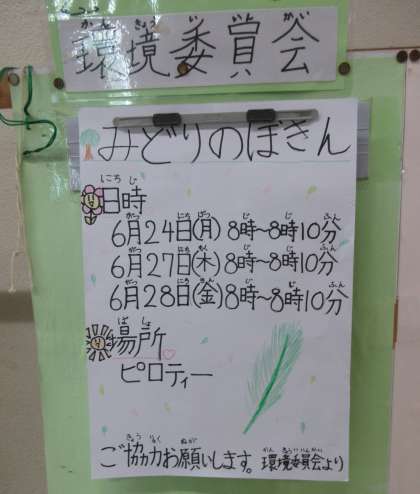 環境委員会
みどりのぼきん
日時
6月24日(月) 8時〜8時10分
6月27日(木) 8時〜8時10分
6月28日(金) 8時〜8時10分
場所
ピロティー
ご協力お願いします。環境委員会より